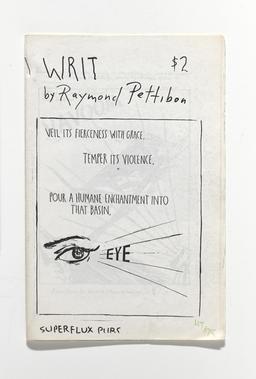 WRIT $2
by Raymond Pettibon
VEIL ITS FIERCENESS WITH GRACE.
TEMPER ITS VIOLENCE.
POUR A HUMANE ENCHANTMENT INTO
THAT BASIN,
EYE
SUPERFLUX PUBS